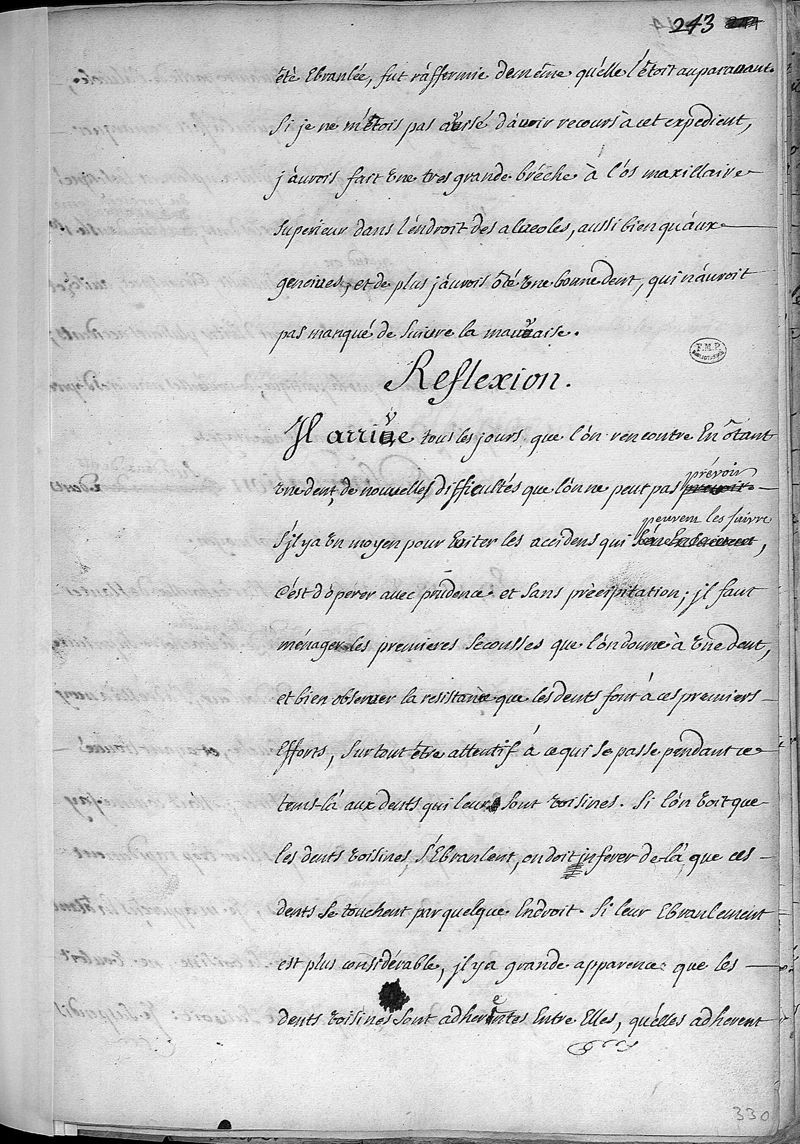 243 244
été Ebranlée, fut râffermie deméme qu'elle l'étoit auparauant.
Si je ne m'étois pas auisé d'auoir recours à cet expedient,
j'aurois fait une tres grande bréche à l'os maxillaire
superieur dans l'endroit des alueoles, aussi bien qu'aux
genciues, et de plus j'aurois ôté une bonne dent, qui n'auroit
pas manqué de suiure la mauuaise.
F.M.P.
Reflexion.
Il arrive tous les jours que l'on rencontre En ôtant
une dent, de nouuelles difficultés que l'on ne peut pas prévoir
S'il y a un moyen pour Euiter les accidens qui peuvent les suivre,
c'est d'opérer auec prudence et sans précipitation; il faut
ménager les premieres secousses que l'on donne à une dent,
et bien obseruer la resistance que les dents font à ces premiers
Efforts, surtout être attentif à ce qui se passe pendant ce
tems-là aux dents qui leur sont voisines. Si l'on voit que
les dents voisines, s'Ebranlent, on doit inferer de là que ces
dents se touchent par quelque Endroit. Si leur Ebranlement
est plus considérable, il y a grande apparence que les
dents voisines sont adherentes Entre Elles, qu'elles adherent
330